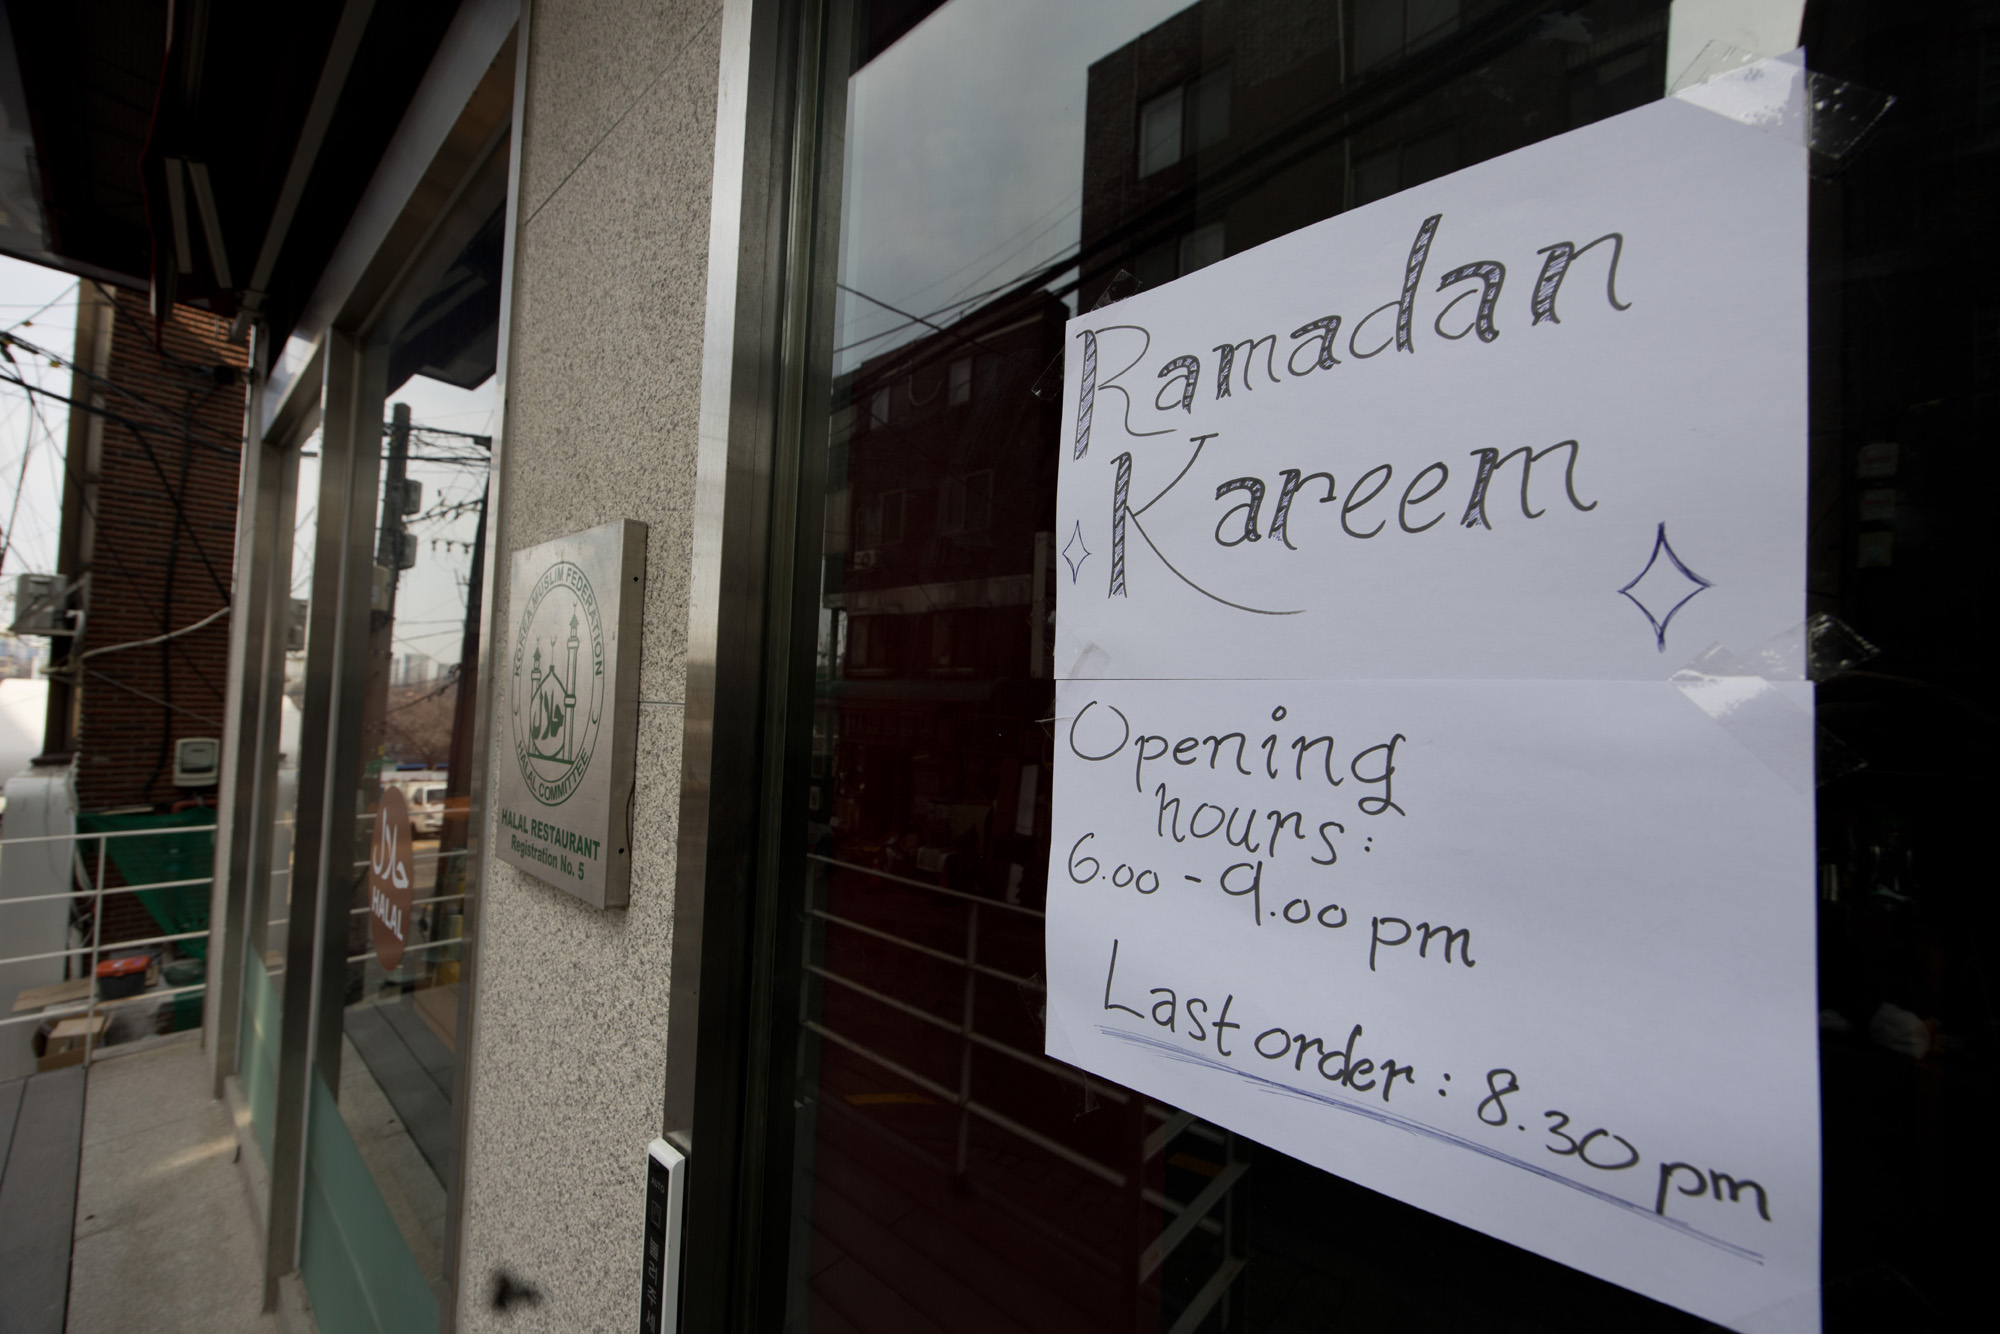 Ramadan
Kareem
Opening
hours:
6.00 - 9.00 pm
Last order: 8.30 pm
KOREA MUSLIM FEDERATION
حلال
HALAL COMMITTEE
HALAL RESTAURANT
Registration No. 5
حلال
HALAL
AUTO